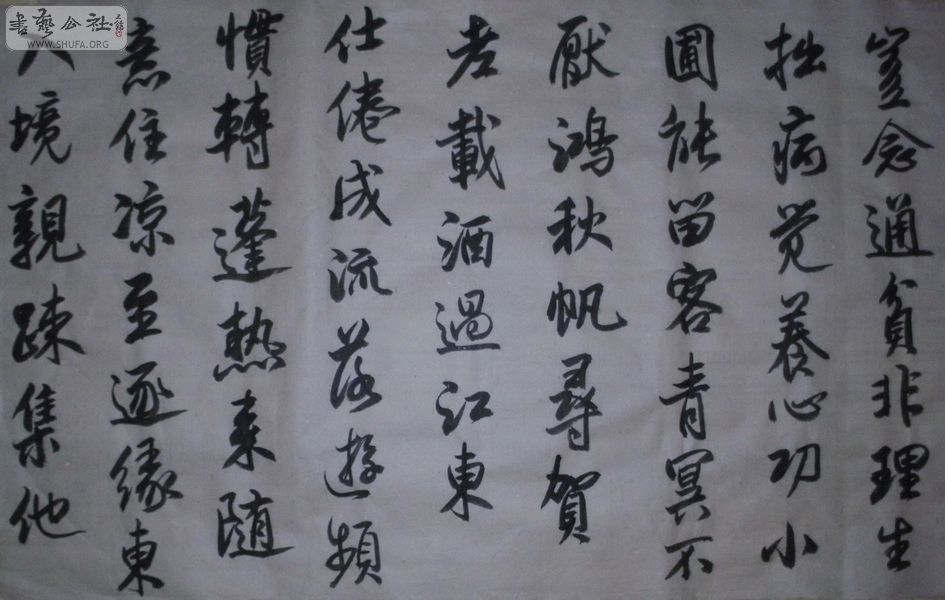 豈念通貧非理生
拙病觉養心功小
圃能留客青冥不
厭鴻秋帆尋賀
老載酒過江東
仕倦成流落遊頻
慣轉蓬熱来随
意住凉至逐緣東
入境親疎集他
書藝公社
WWW.SHUFA.ORG